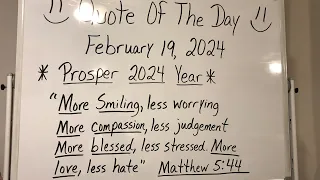 Quote Of The Day
February 19, 2024
* Prosper 2024 Year *
"More Smiling, less worrying
More compassion, less judgement
More blessed, less stressed. More
love, less hate" Matthew 5:44